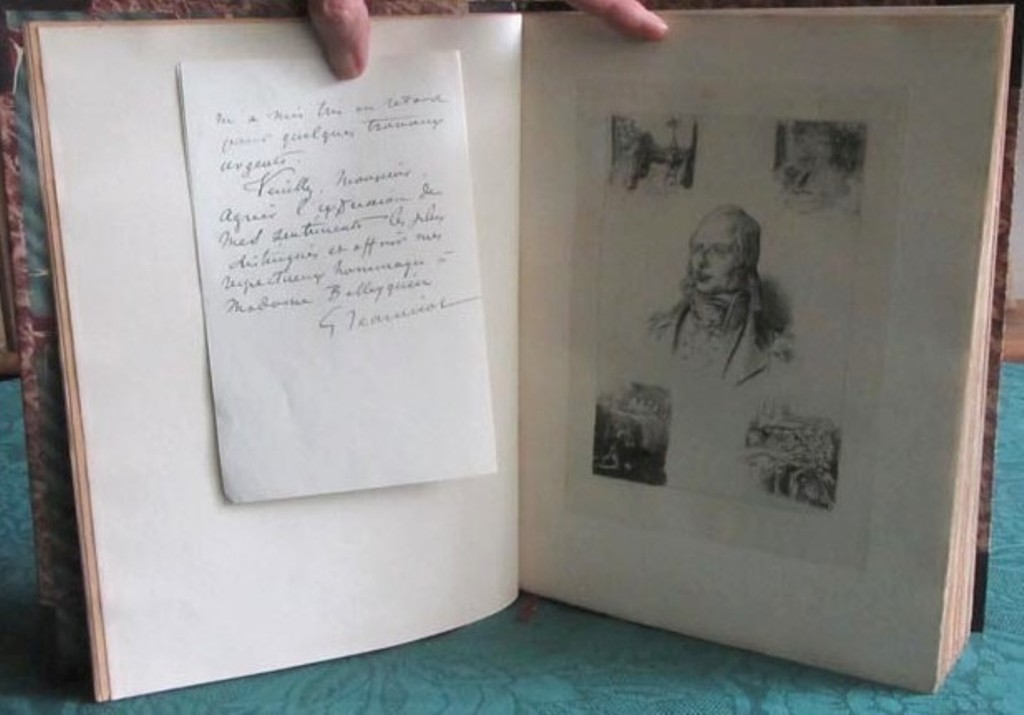 m'a mis très en retard
pour quelques travaux
urgents.
Veuillez, Monsieur,
agréer l'expression de
mes sentiments les plus
distingués et offrir mes
respectueux hommages à
Madame Bellezguéra
G Jeanniot